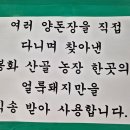 여러 양돈장을 직접
다니며 찾아낸
봉화 산골 농장 한곳의
얼룩돼지만을
직송 받아 사용합니다.